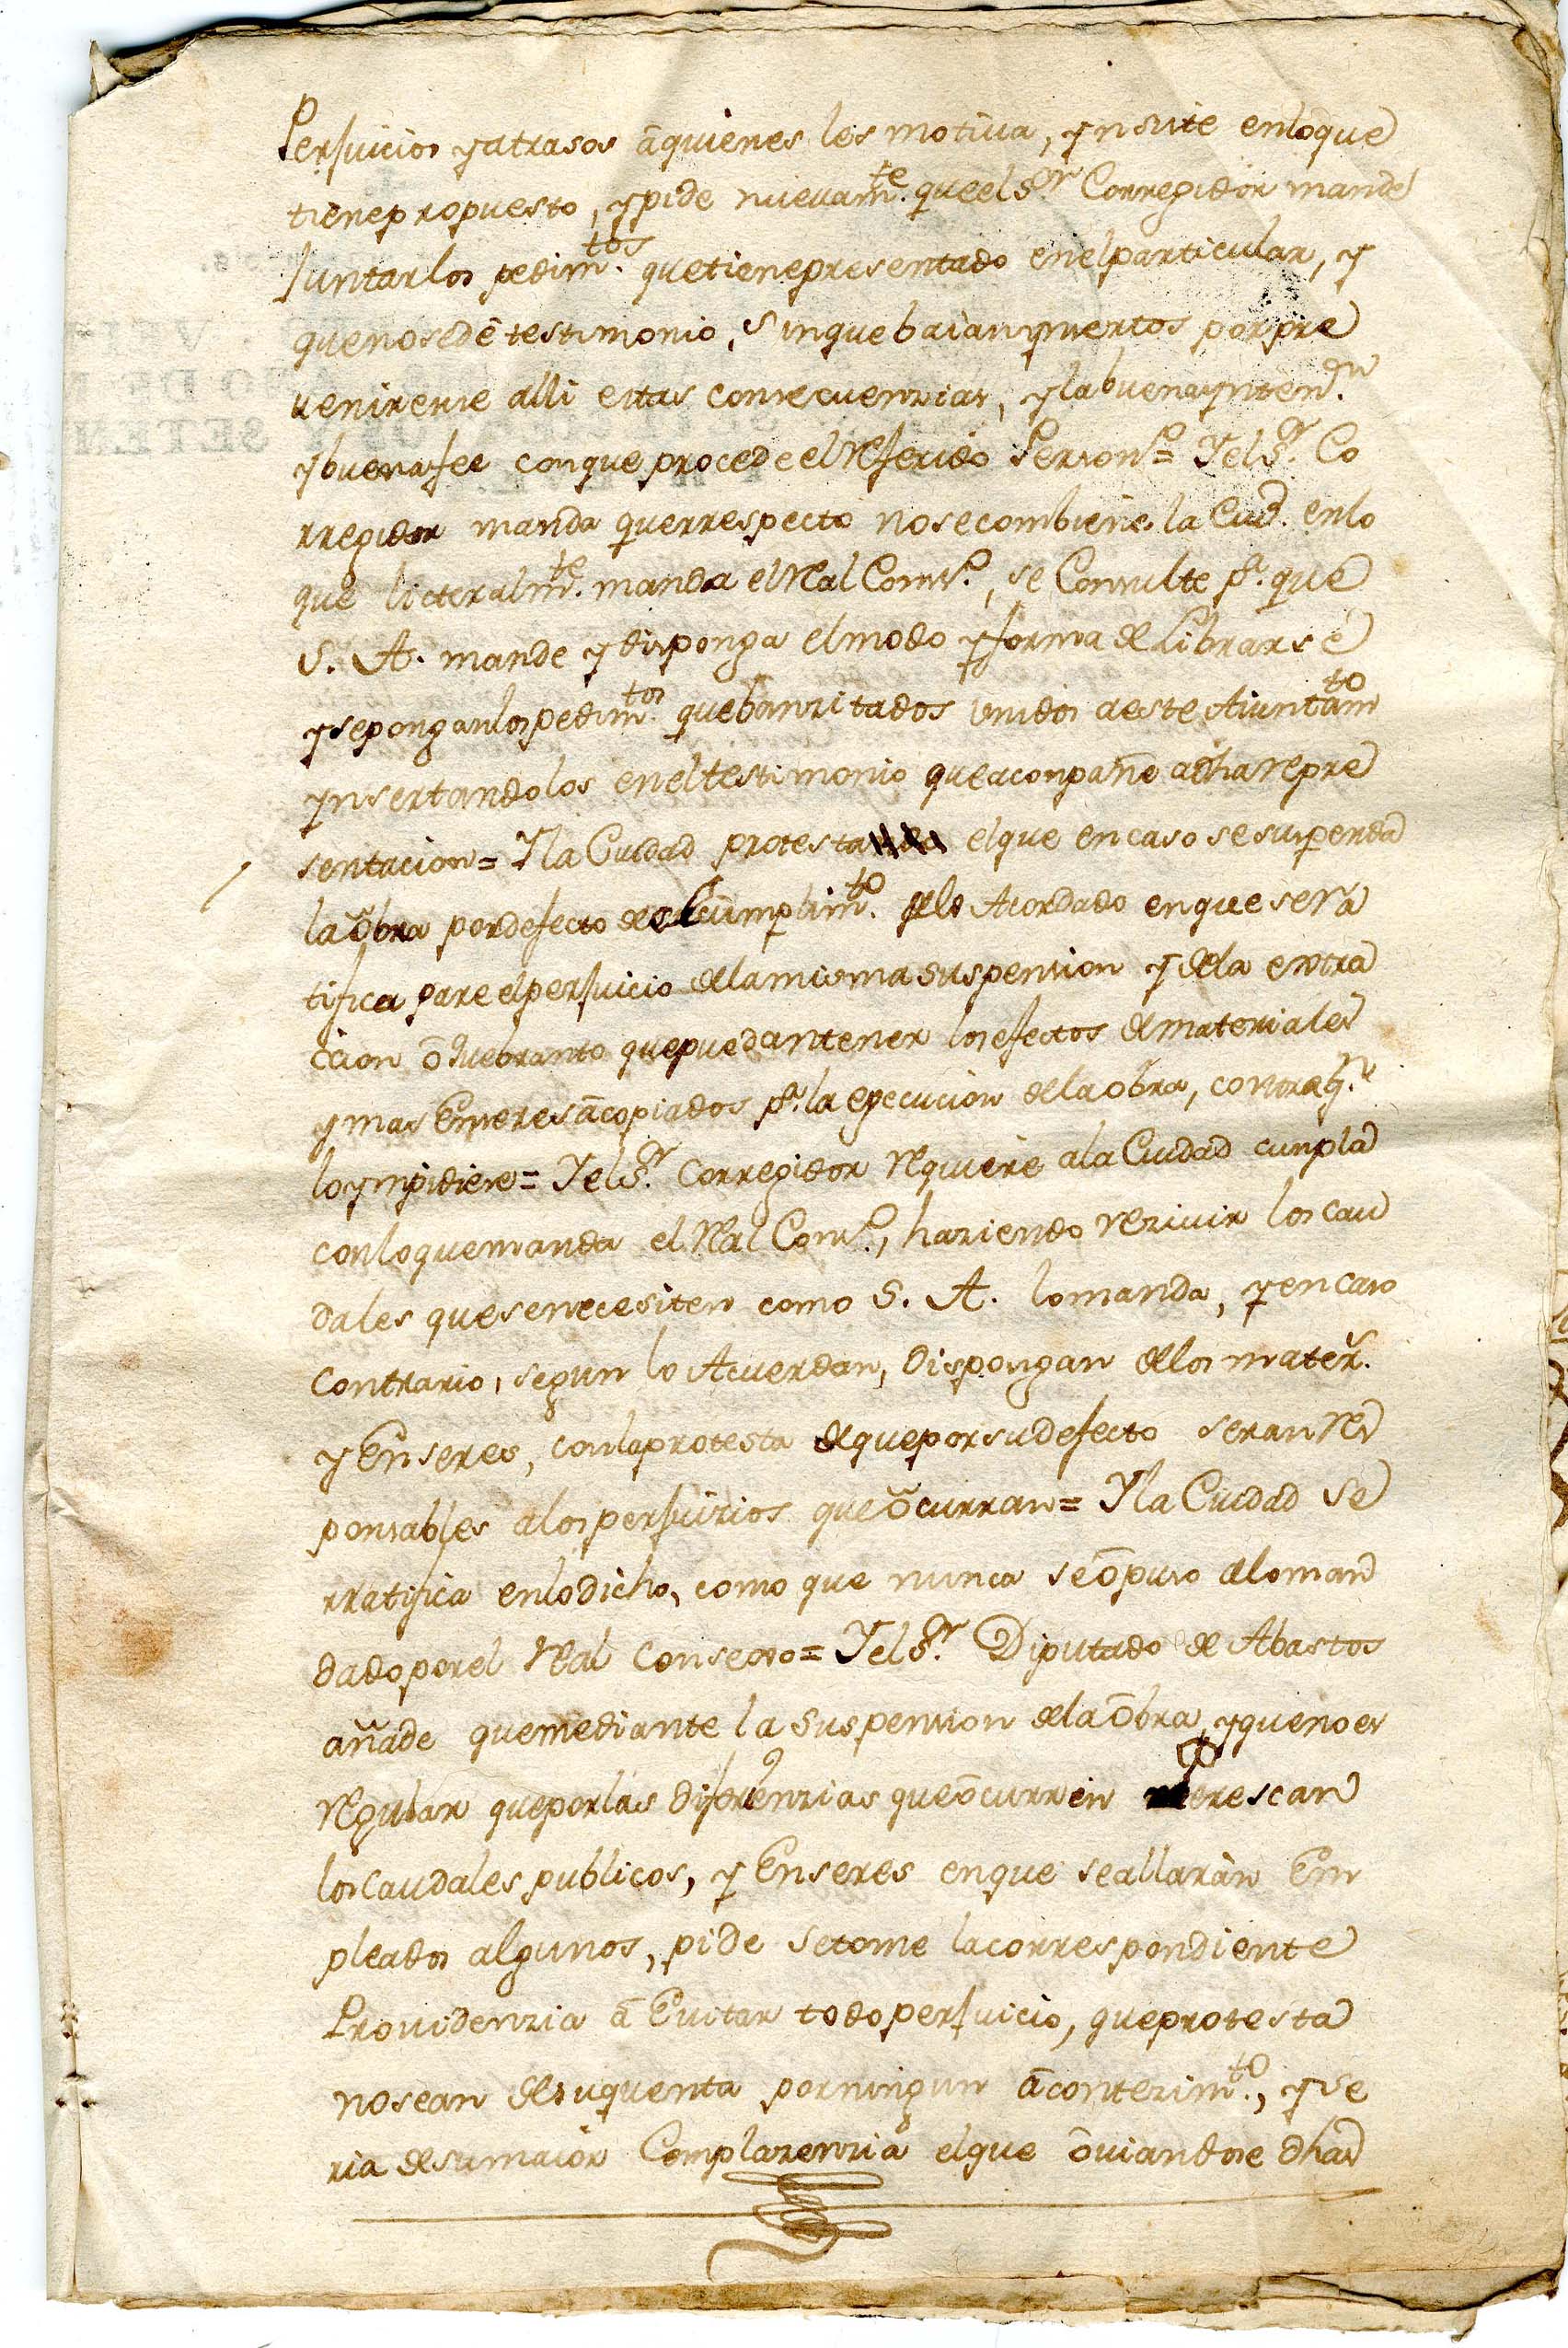 Perjuicios y atrasos ã quienes les motiva, ynsiste en lo que
tiene propuesto, y pide nuevam.te que el S.or Corregidor mande
Juntar los pedim.tos que tiene presentado en el particular, y
que no se dè testimonio, sin que baian ynsertos por pre
venirerse alli estas consecuenzias, y la buena ynten.on
y buena fee con que procede el Referido Person.o = Y el S.or Co
rregidor manda que rrespecto no se combiene la Ciud. en lo
que licteralm.te manda el Real Cons.o, se Consulte p.a que
S. A. mande y disponga el modo y forma de Librarse
y se pongan los pedim.tos que ban zitados unidos a este Aiuntam.to
ynsertandolos en el testimonio que acompañe a dha repre
sentacion = Y la Ciudad protesta el que en caso se suspenda
la õbra por defecto del Cumplim.to de lo Acordado en que se rra
tifica pare el perjuicio de la misma suspension y de la extra
ccion õ quebranto que puedan tener los efectos de materiales
y mas Enseres ãcopiados p.a la egecucion de la obra, contra q.n
lo ympidiere = Y el S.or Corregidor Requiere a la Ciudad cumpla
con lo que manda el Real Cons.o, haziendo Rezivir los cau
dales que se necesiten como S. A. lo manda, y en caso
contrario, segun lo Acuerdan, dispongan de los mater.
y Enseres, con la protesta de que por su defecto seran Res
ponsables a los perjuizios que õcurran = Y la Ciudad se
rratifica en lo dicho, como que nunca se õpuso a lo man
dado por el Real Consejo = Y el S.or Diputado de Abastos
añade que mediante la suspension de la õbra, y que no es
Regular que por las diferenzias que õcurren perescan
los Caudales publicos, y Enseres en que se allaràn Em
pleados algunos, pide se tome la correspondiente
Providenzia ã Evitar todo perjuicio, que protesta
no sean de su quenta por ningun ãcontezim.to, y se
ria de su maior Complazenzia el que õviandose dhas